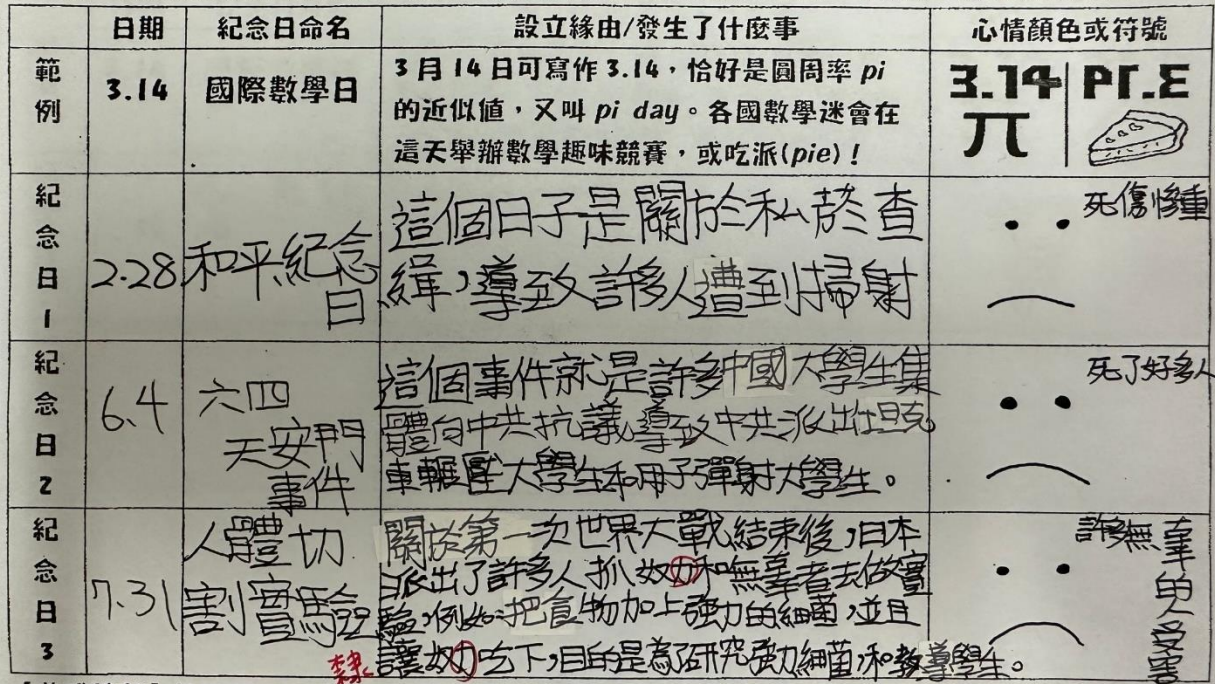 日期 紀念日命名 設立緣由/發生了什麼事 心情顏色或符號
範例
3.14
國際數學日
3月14日可寫作3.14，恰好是圓周率 pi
的近似值，又叫 pi day。各國數學迷會在
這天舉辦數學趣味競賽，或吃派(pie)！
3.14 PI.E
π
紀念日1
2.28
和平紀念
日
這個日子是關於私菸查
緝，導致許多人遭到掃射
死傷慘重
紀念日2
6.4
六四
天安門
事件
這個事件就是許多中國大學生集
體向中共抗議，導致中共派出坦克
車輾壓大學生和用子彈射大學生。
死了好多人
紀念日3
7.31
人體切
割實驗
關於第一次世界大戰結束後，日本
派出了許多人抓奴力和無辜者去做實
驗，例如：把食物加上強力的細菌，並且
讓奴力吃下，目的是為了研究強力細菌，和教導學生。
隸
許多無辜的人受害